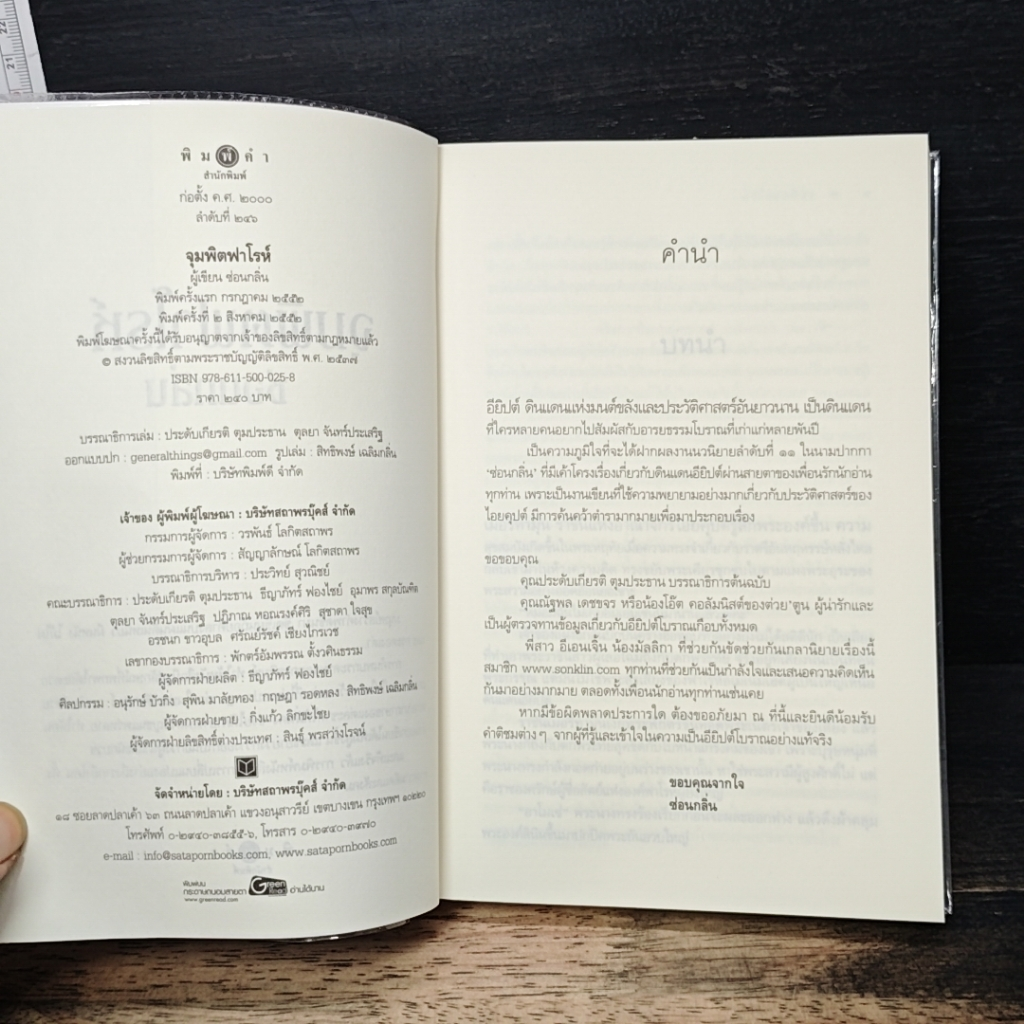 22
21
พิมพ์คำ
สำนักพิมพ์
ก่อตั้ง ค.ศ. ๒๐๐๐
ลำดับที่ ๒๔๖
จุมพิตฟาโรห์
ผู้เขียน ซ่อนกลิ่น
พิมพ์ครั้งแรก กรกฎาคม ๒๕๕๒
พิมพ์ครั้งที่ ๒ สิงหาคม ๒๕๕๒
พิมพ์โฆษณาครั้งนี้ได้รับอนุญาตจากเจ้าของลิขสิทธิ์ตามกฎหมายแล้ว
© สงวนลิขสิทธิ์ตามพระราชบัญญัติลิขสิทธิ์ พ.ศ. ๒๕๓๗
ISBN 978-611-500-025-8
ราคา ๒๔๐ บาท
บรรณาธิการเล่ม : ประดับเกียรติ ตุมประธาน ตุลยา จันทร์ประเสริฐ
ออกแบบปก : generalthings@gmail.com รูปเล่ม : สิทธิพงษ์ เฉลิมกลิ่น
พิมพ์ที่ : บริษัทพิมพ์ดี จำกัด
เจ้าของ ผู้พิมพ์ผู้โฆษณา : บริษัทสถาพรบุ๊คส์ จำกัด
กรรมการผู้จัดการ : วรพันธ์ โลกิตสถาพร
ผู้ช่วยกรรมการผู้จัดการ : สัญญาลักษณ์ โลกิตสถาพร
บรรณาธิการบริหาร : ประวิทย์ สุวณิชย์
คณะบรรณาธิการ : ประดับเกียรติ ตุมประธาน ธีญาภัทร์ ฟองไชย์ อุมาพร สกุลบัณฑิต
ตุลยา จันทร์ประเสริฐ ปฏิภาณ หอณรงค์ศิริ สุชาดา ใจสุข
อรชนก ขาวอุบล ศรัณย์รัชค์ เชียงไกรเวช
เลขากองบรรณาธิการ : พักตร์อัมพรรณ ตั้งวศินธรรม
ผู้จัดการฝ่ายผลิต : ธีญาภัทร์ ฟองไชย์
ศิลปกรรม : อนุรักษ์ บัวกิ่ง สุพิน มาลัยทอง กฤษฎา รอดหลง สิทธิพงษ์ เฉลิมกลิ่น
ผู้จัดการฝ่ายขาย : กิ่งแก้ว ลิกขะไชย
ผู้จัดการฝ่ายลิขสิทธิ์ต่างประเทศ : สินธุ์ พรสว่างโรจน์
จัดจำหน่ายโดย : บริษัทสถาพรบุ๊คส์ จำกัด
๑๘ ซอยลาดปลาเค้า ๖๓ ถนนลาดปลาเค้า แขวงอนุสาวรีย์ เขตบางเขน กรุงเทพฯ ๑๐๒๒๐
โทรศัพท์ ๐-๒๙๔๐-๓๘๕๕-๖, โทรสาร ๐-๒๙๔๐-๓๙๗๐
e-mail : info@satapornbooks.com, www.satapornbooks.com
พิมพ์บน
กระดาษถนอมสายตา Green Read อ่านได้นาน
www.greenread.com
คำนำ
อียิปต์ ดินแดนแห่งมนต์ขลังและประวัติศาสตร์อันยาวนาน เป็นดินแดน
ที่ใครหลายคนอยากไปสัมผัสกับอารยธรรมโบราณที่เก่าแก่หลายพันปี
เป็นความภูมิใจที่จะได้ฝากผลงานนวนิยายลำดับที่ ๑๑ ในนามปากกา
‘ซ่อนกลิ่น’ ที่มีเค้าโครงเรื่องเกี่ยวกับดินแดนอียิปต์ผ่านสายตาของเพื่อนรักนักอ่าน
ทุกท่าน เพราะเป็นงานเขียนที่ใช้ความพยายามอย่างมากเกี่ยวกับประวัติศาสตร์ของ
ไอยคุปต์ มีการค้นคว้าตำรามากมายเพื่อมาประกอบเรื่อง
ขอขอบคุณ
คุณประดับเกียรติ ตุมประธาน บรรณาธิการต้นฉบับ
คุณณัฐพล เดชขจร หรือน้องโอ๊ต คอลัมนิสต์ของต่วย’ตูน ผู้น่ารักและ
เป็นผู้ตรวจทานข้อมูลเกี่ยวกับอียิปต์โบราณเกือบทั้งหมด
พี่สาว อีเอนเจิ้น น้องมัลลิกา ที่ช่วยกันขัดช่วยกันเกลานิยายเรื่องนี้
สมาชิก www.sonklin.com ทุกท่านที่ช่วยกันเป็นกำลังใจและเสนอความคิดเห็น
กันมาอย่างมากมาย ตลอดทั้งเพื่อนนักอ่านทุกท่านเช่นเคย
หากมีข้อผิดพลาดประการใด ต้องขออภัยมา ณ ที่นี้และยินดีน้อมรับ
คำติชมต่างๆ จากผู้ที่รู้และเข้าใจในความเป็นอียิปต์โบราณอย่างแท้จริง
ขอบคุณจากใจ
ซ่อนกลิ่น